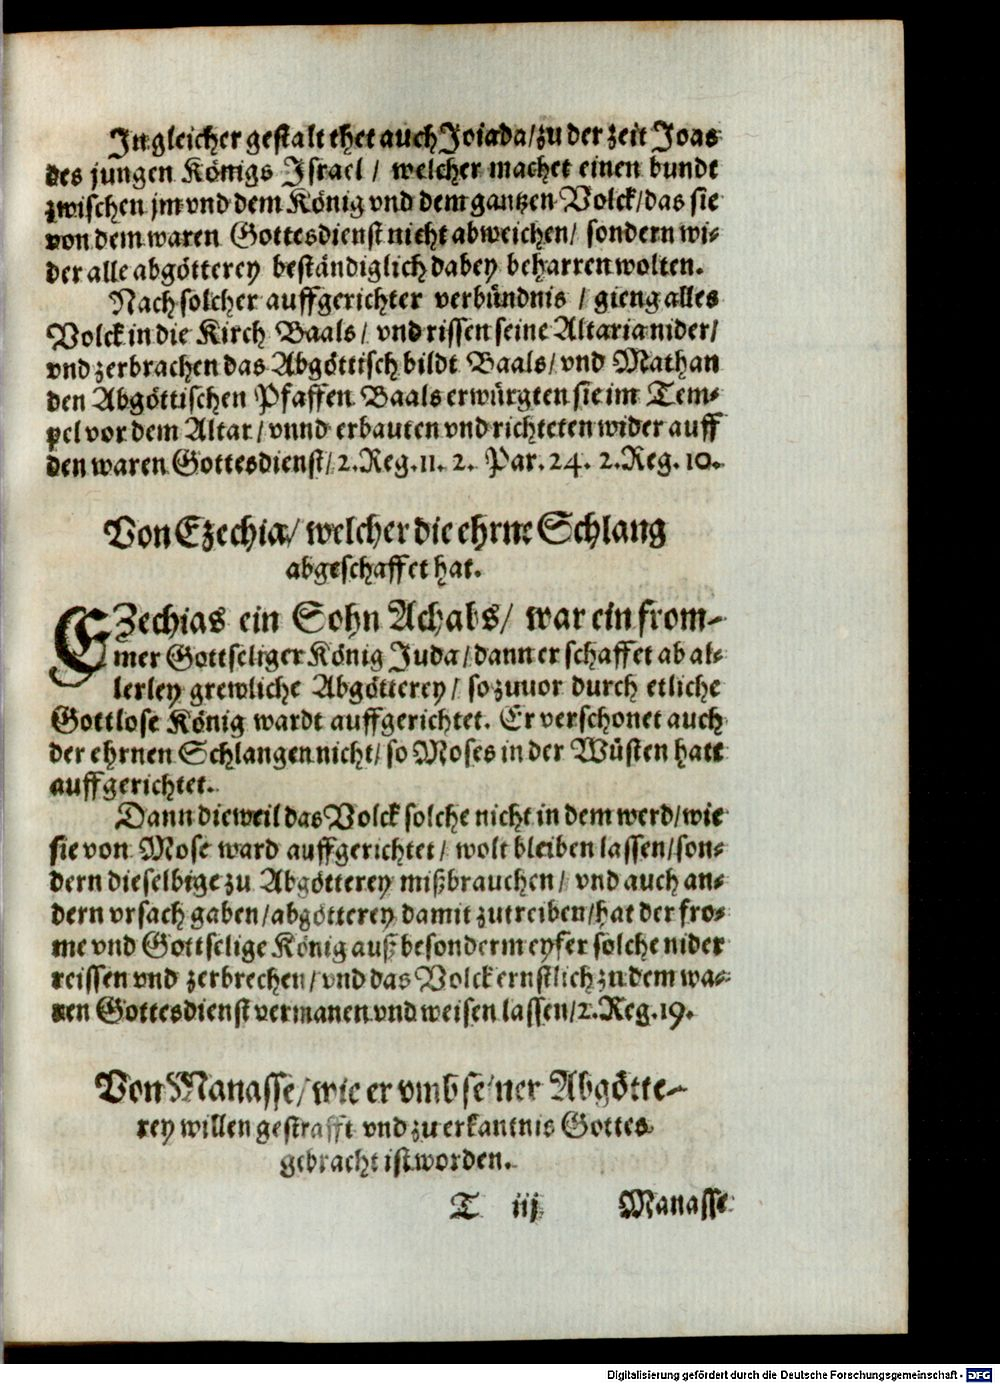 In gleicher gestalt thet auch Joiada/zu der zeit Joas
des jungen Königs Israel / welcher machet einen bundt
zwischen jm vnd dem König vnd dem gantzen Volck/das sie
von dem waren Gottesdienst nicht abweichen/ sondern wi-
der alle abgötterey beständiglich dabey beharren wolten.
Nach solcher auffgerichter verbündnis / gieng alles
Volck in die Kirch Baals/ vnd rissen seine Altaria nider/
vnd zerbrachen das Abgöttisch bildt Baals/ vnd Mathan
den Abgöttischen Pfaffen Baals erwürgten sie im Tem-
pel vor dem Altar/ vnnd erbauten vnd richteten wider auff
den waren Gottesdienst/ 2. Reg. 11. 2. Par. 24. 2. Reg. 10.
Von Ezechia/ welcher die ehrne Schlang
abgeschaffet hat.
EZechias ein Sohn Achabs/ war ein from-
mer Gottseliger König Juda/ dann er schaffet ab al-
lerley grewliche Abgötterey/ so zuuor durch etliche
Gottlose König wardt auffgerichtet. Er verschonet auch
der ehrnen Schlangen nicht/ so Moses in der Wüsten hatt
auffgerichtet.
Dann dieweil das Volck solche nicht in dem werd/wie
sie von Mose ward auffgerichtet/ wolt bleiben lassen/son-
dern dieselbige zu Abgötterey mißbrauchen/ vnd auch an-
dern vrsach gaben/abgötterey damit zutreiben/hat der fro-
me vnd Gottselige König auß besonderm eyfer solche nider
reissen vnd zerbrechen/vnd das Volck ernstlich zu dem wa-
ren Gottesdienst vermanen vnd weisen lassen/2. Reg. 19.
Von Manasse/wie er vmb seiner Abgötte-
rey willen gestrafft vnd zu erkantnis Gottes
gebracht ist worden.
T iij Manasse
Digitalisierung gefördert durch die Deutsche Forschungsgemeinschaft - DFG